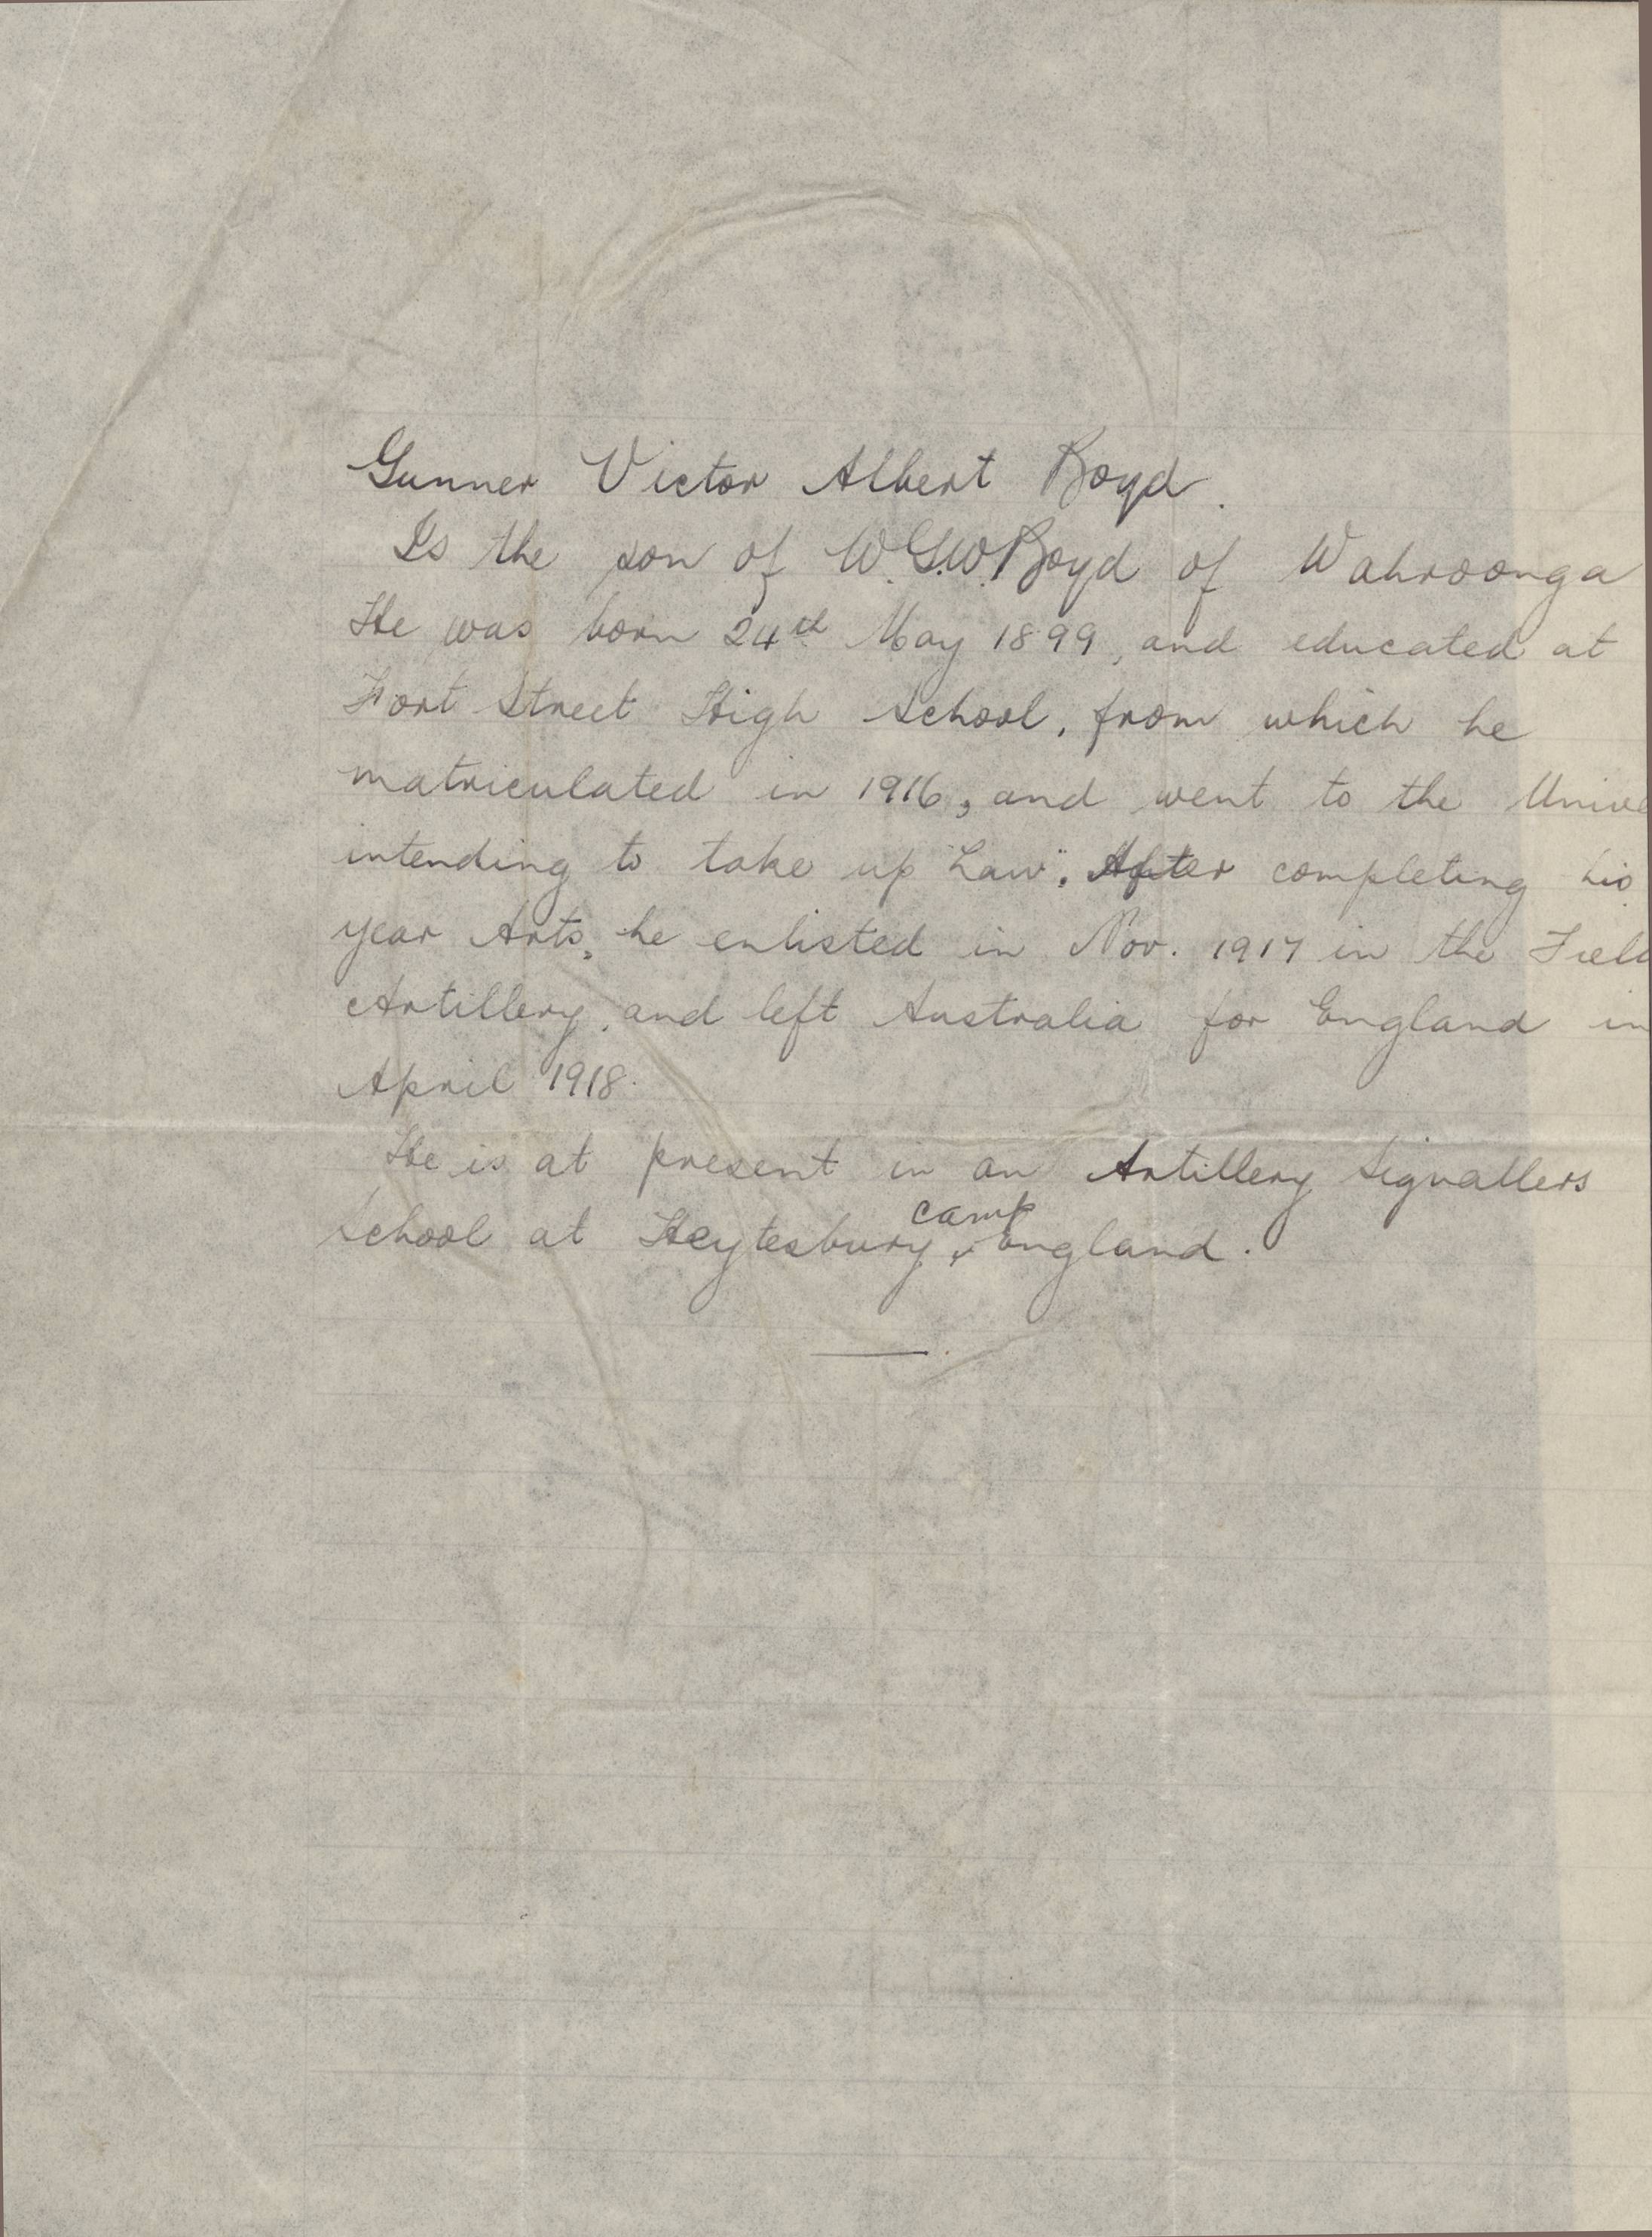 Gunner Victor Albert Boyd.
Is the son of W.G.W. Boyd of Wahroonga
He was born 24th May 1899, and educated at
Fort Street High School, from which he
matriculated in 1916, and went to the Unive
intending to take up "Law". After completing his
year Arts, he enlisted in Nov. 1917 in the Field
Artillery, and left Australia for England in
April 1918.
He is at present in an Artillery Signallers
camp
School at Heytesbury, England.